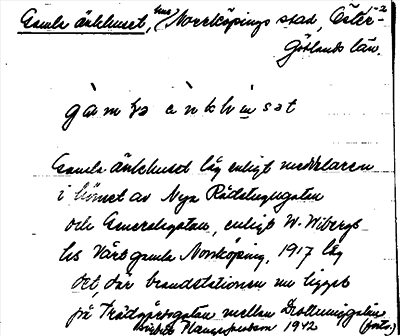 Gamla änkhuset, hus, Norrköpings stad, Öster-
götlands län.
gàmɫa ènkhu̲sət
Gamla änkhuset låg enligt meddelaren
i hörnet av Nya Rådstugugatan
och Generalsgatan, enligt W. Wibergs-
Vårt gamla Norrköping, 1917 låg
det, där brandstationen nu ligger
på Trädgårdsgatan mellan Drottninggatan
1942 (forts.)